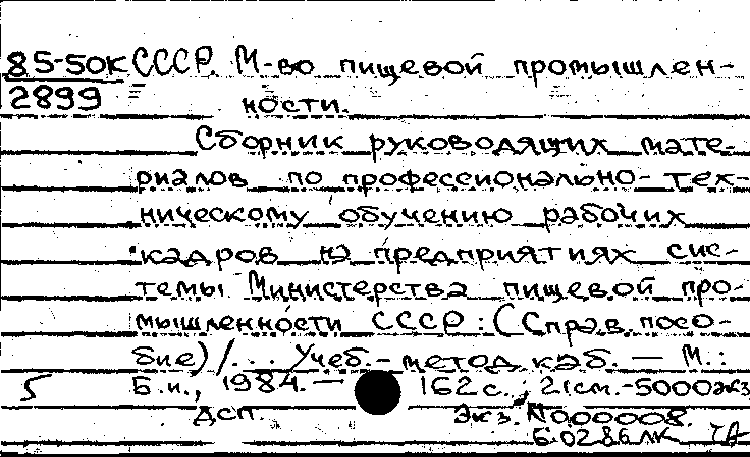 85-50к СССР. М-во пищевой промышлен-
2899 ности.
Сборник руководящих мате-
риалов по профессионально-тех-
ническому обучению рабочих
кадров на предприятиях сис-
темы Министерства пищевой про-
мышленности СССР: (Справ. посо-
бие) /... Учеб.-метод. каб. — М.:
5 Б.и., 1984. — 162 с.; 21 см. - 5000 экз
ДСП. Экз. N000008.
6.02.86 ЛК